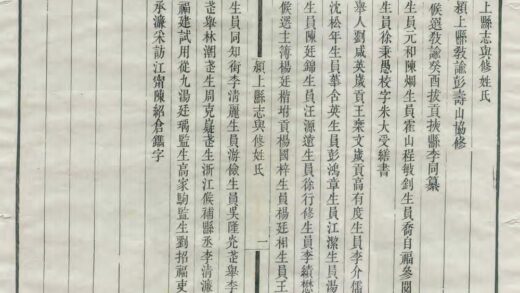 上縣志與修姓氏
潁上縣敎諭彭壽山協修
候選敎諭癸酉拔貢掖縣李同纂
生員元和陳炯生員霍山程敏釗生員喬自福參閱
生員徐秉愚校字朱大受繕書
舉人劉咸英歲貢王棻文歲貢高有度生員李介儒
沈松年生員葉含英生員彭鴻章生員江潔生員湯
生員陳廷錦生員汪源遠生員徐行修生員李績懋
候選主簿楊廷楷坿貢楊國梓生員楊廷相生員王
潁上縣志與修姓氏
一
生員同知銜李清麗生員游儉生員吳隆光
舉林潮 生周克 生浙江候補縣丞李清濂
福建試用從九湯廷瑀監生高家駒監生劉招福吏
承濂采訪江甯陳紹倉鐫字